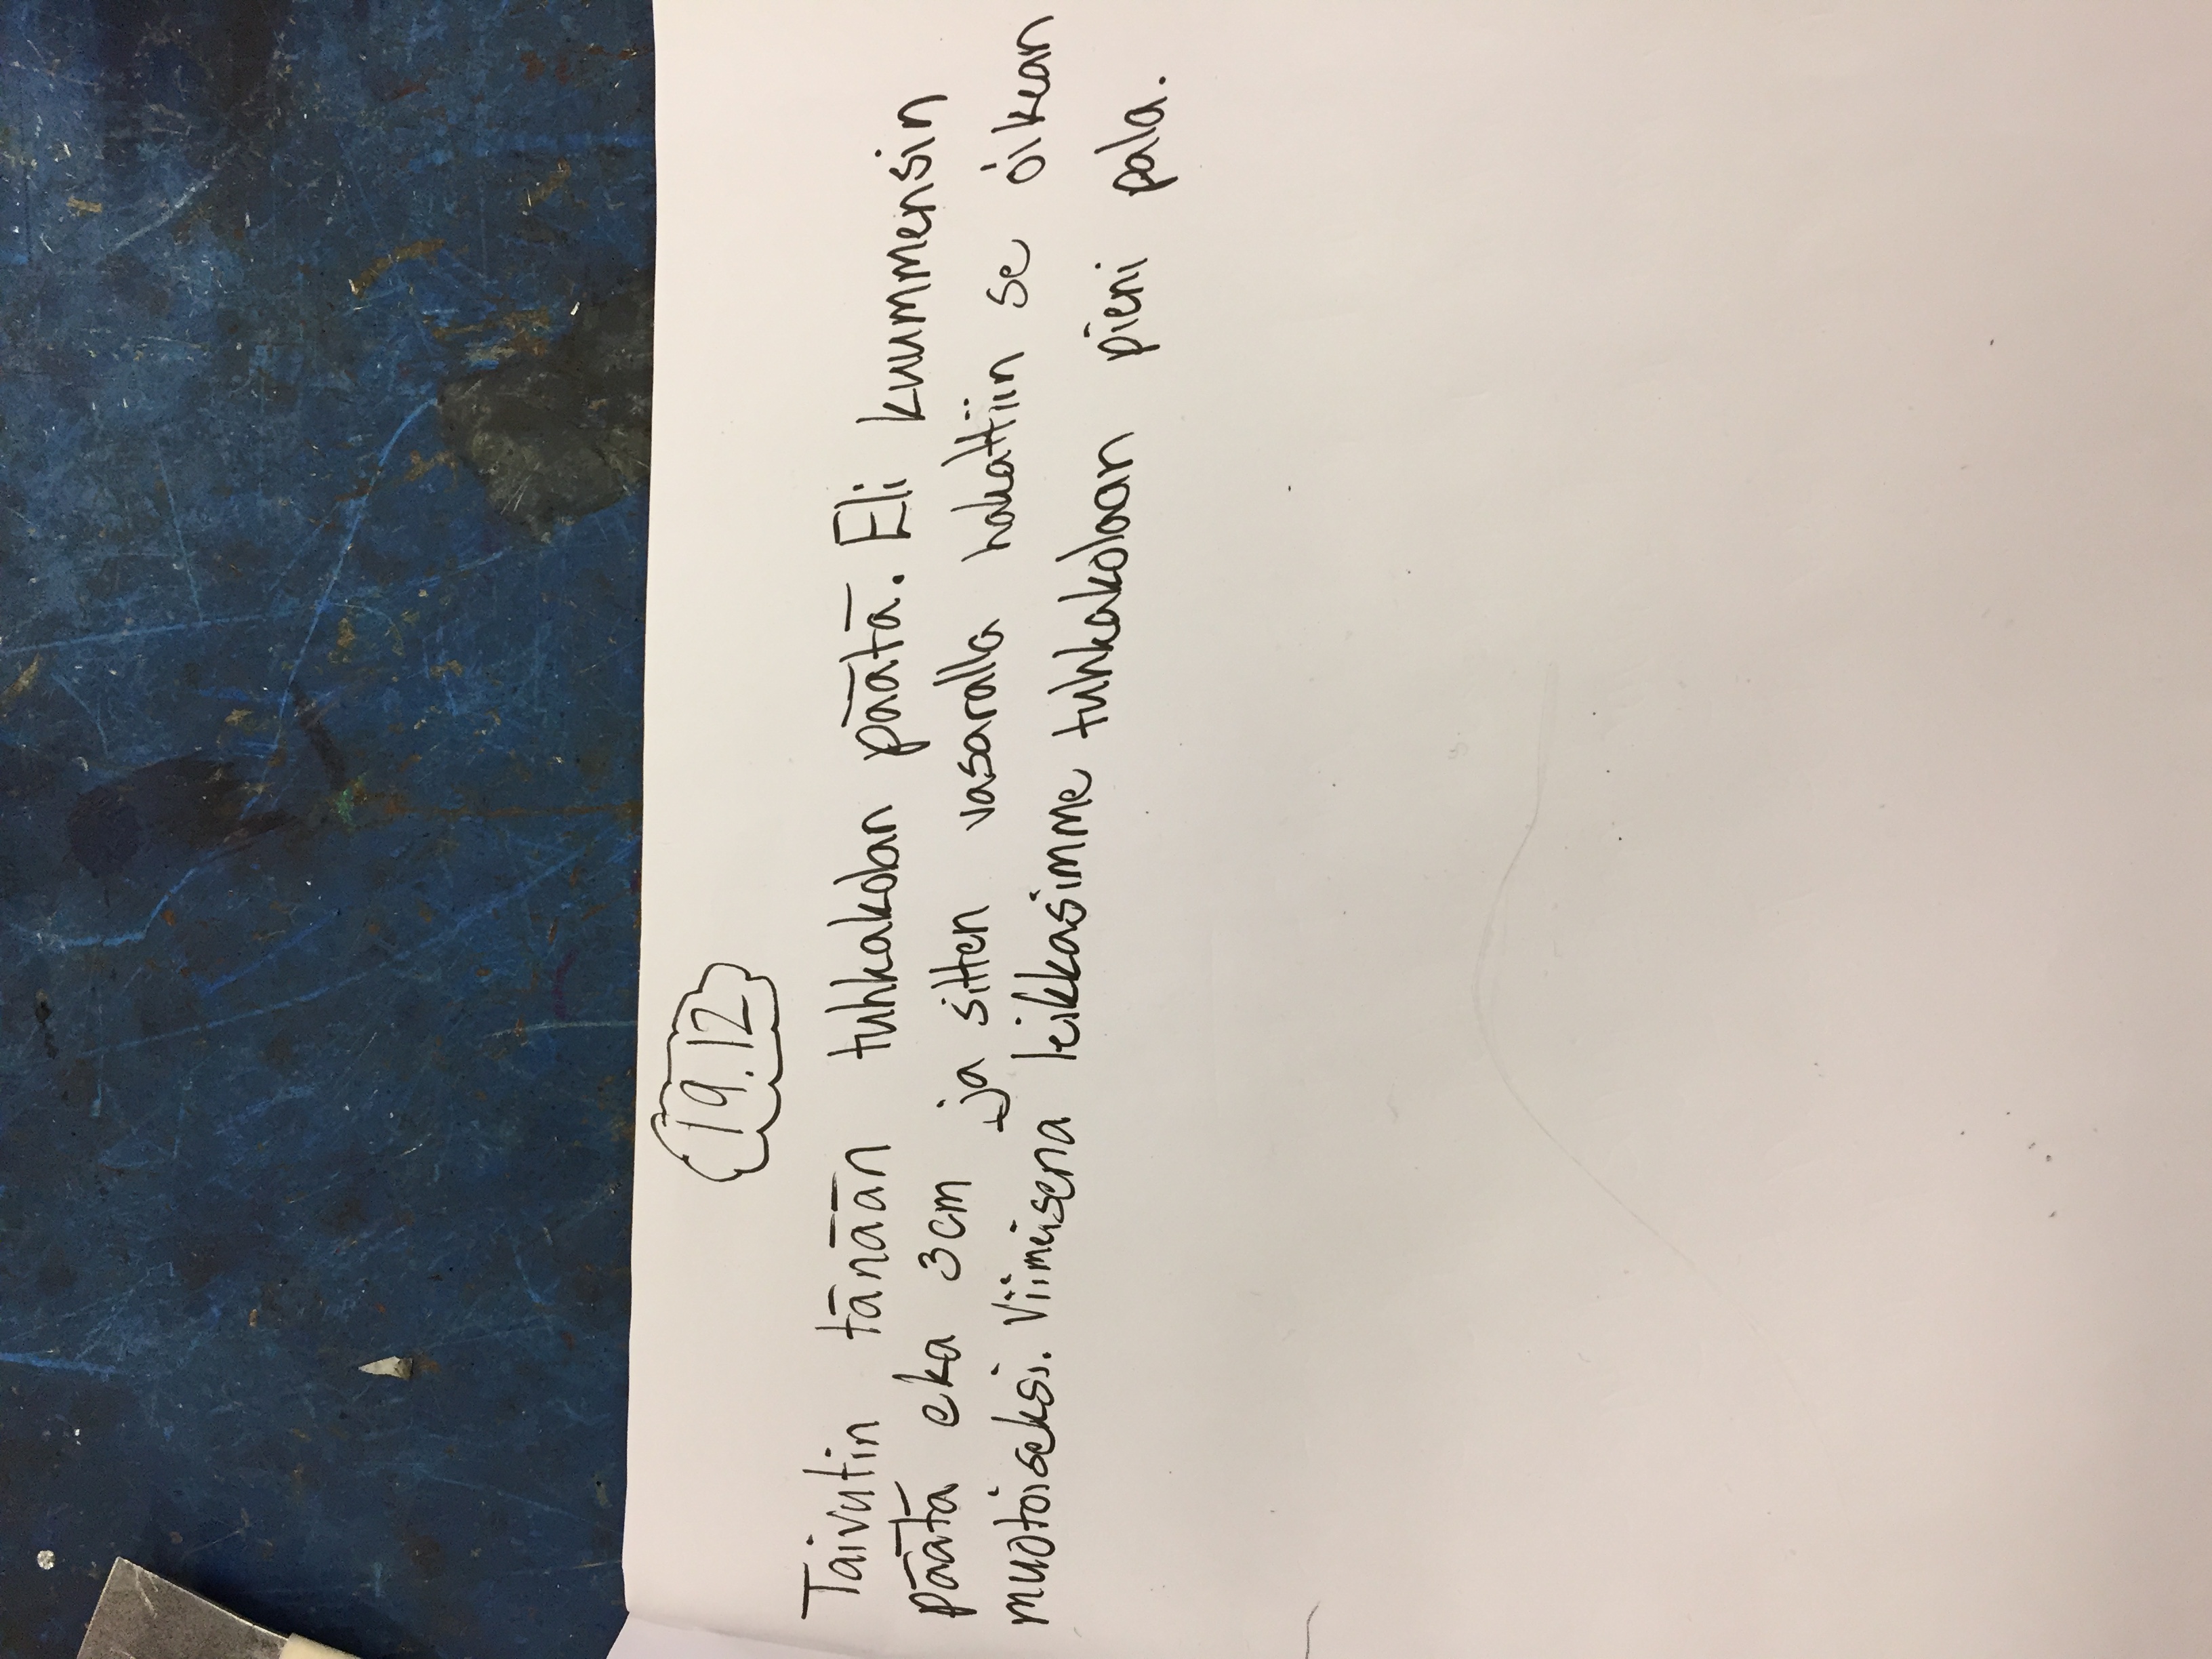 19.12
Taivutin tänään tuhkakolan päätä. Eli kuummensin
päätä eka 3cm ja sitten vasaralla hakattiin se oikean
muotoiseksi. Viimeisenä leikkasimme tuhkakolaan pieni pala.